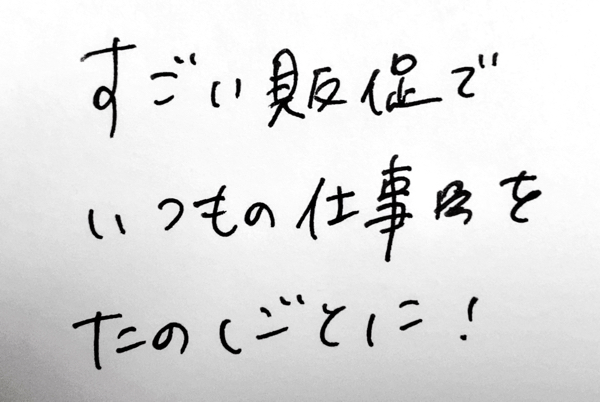 すごい販促で
いつもの仕事を
たのしごとに!